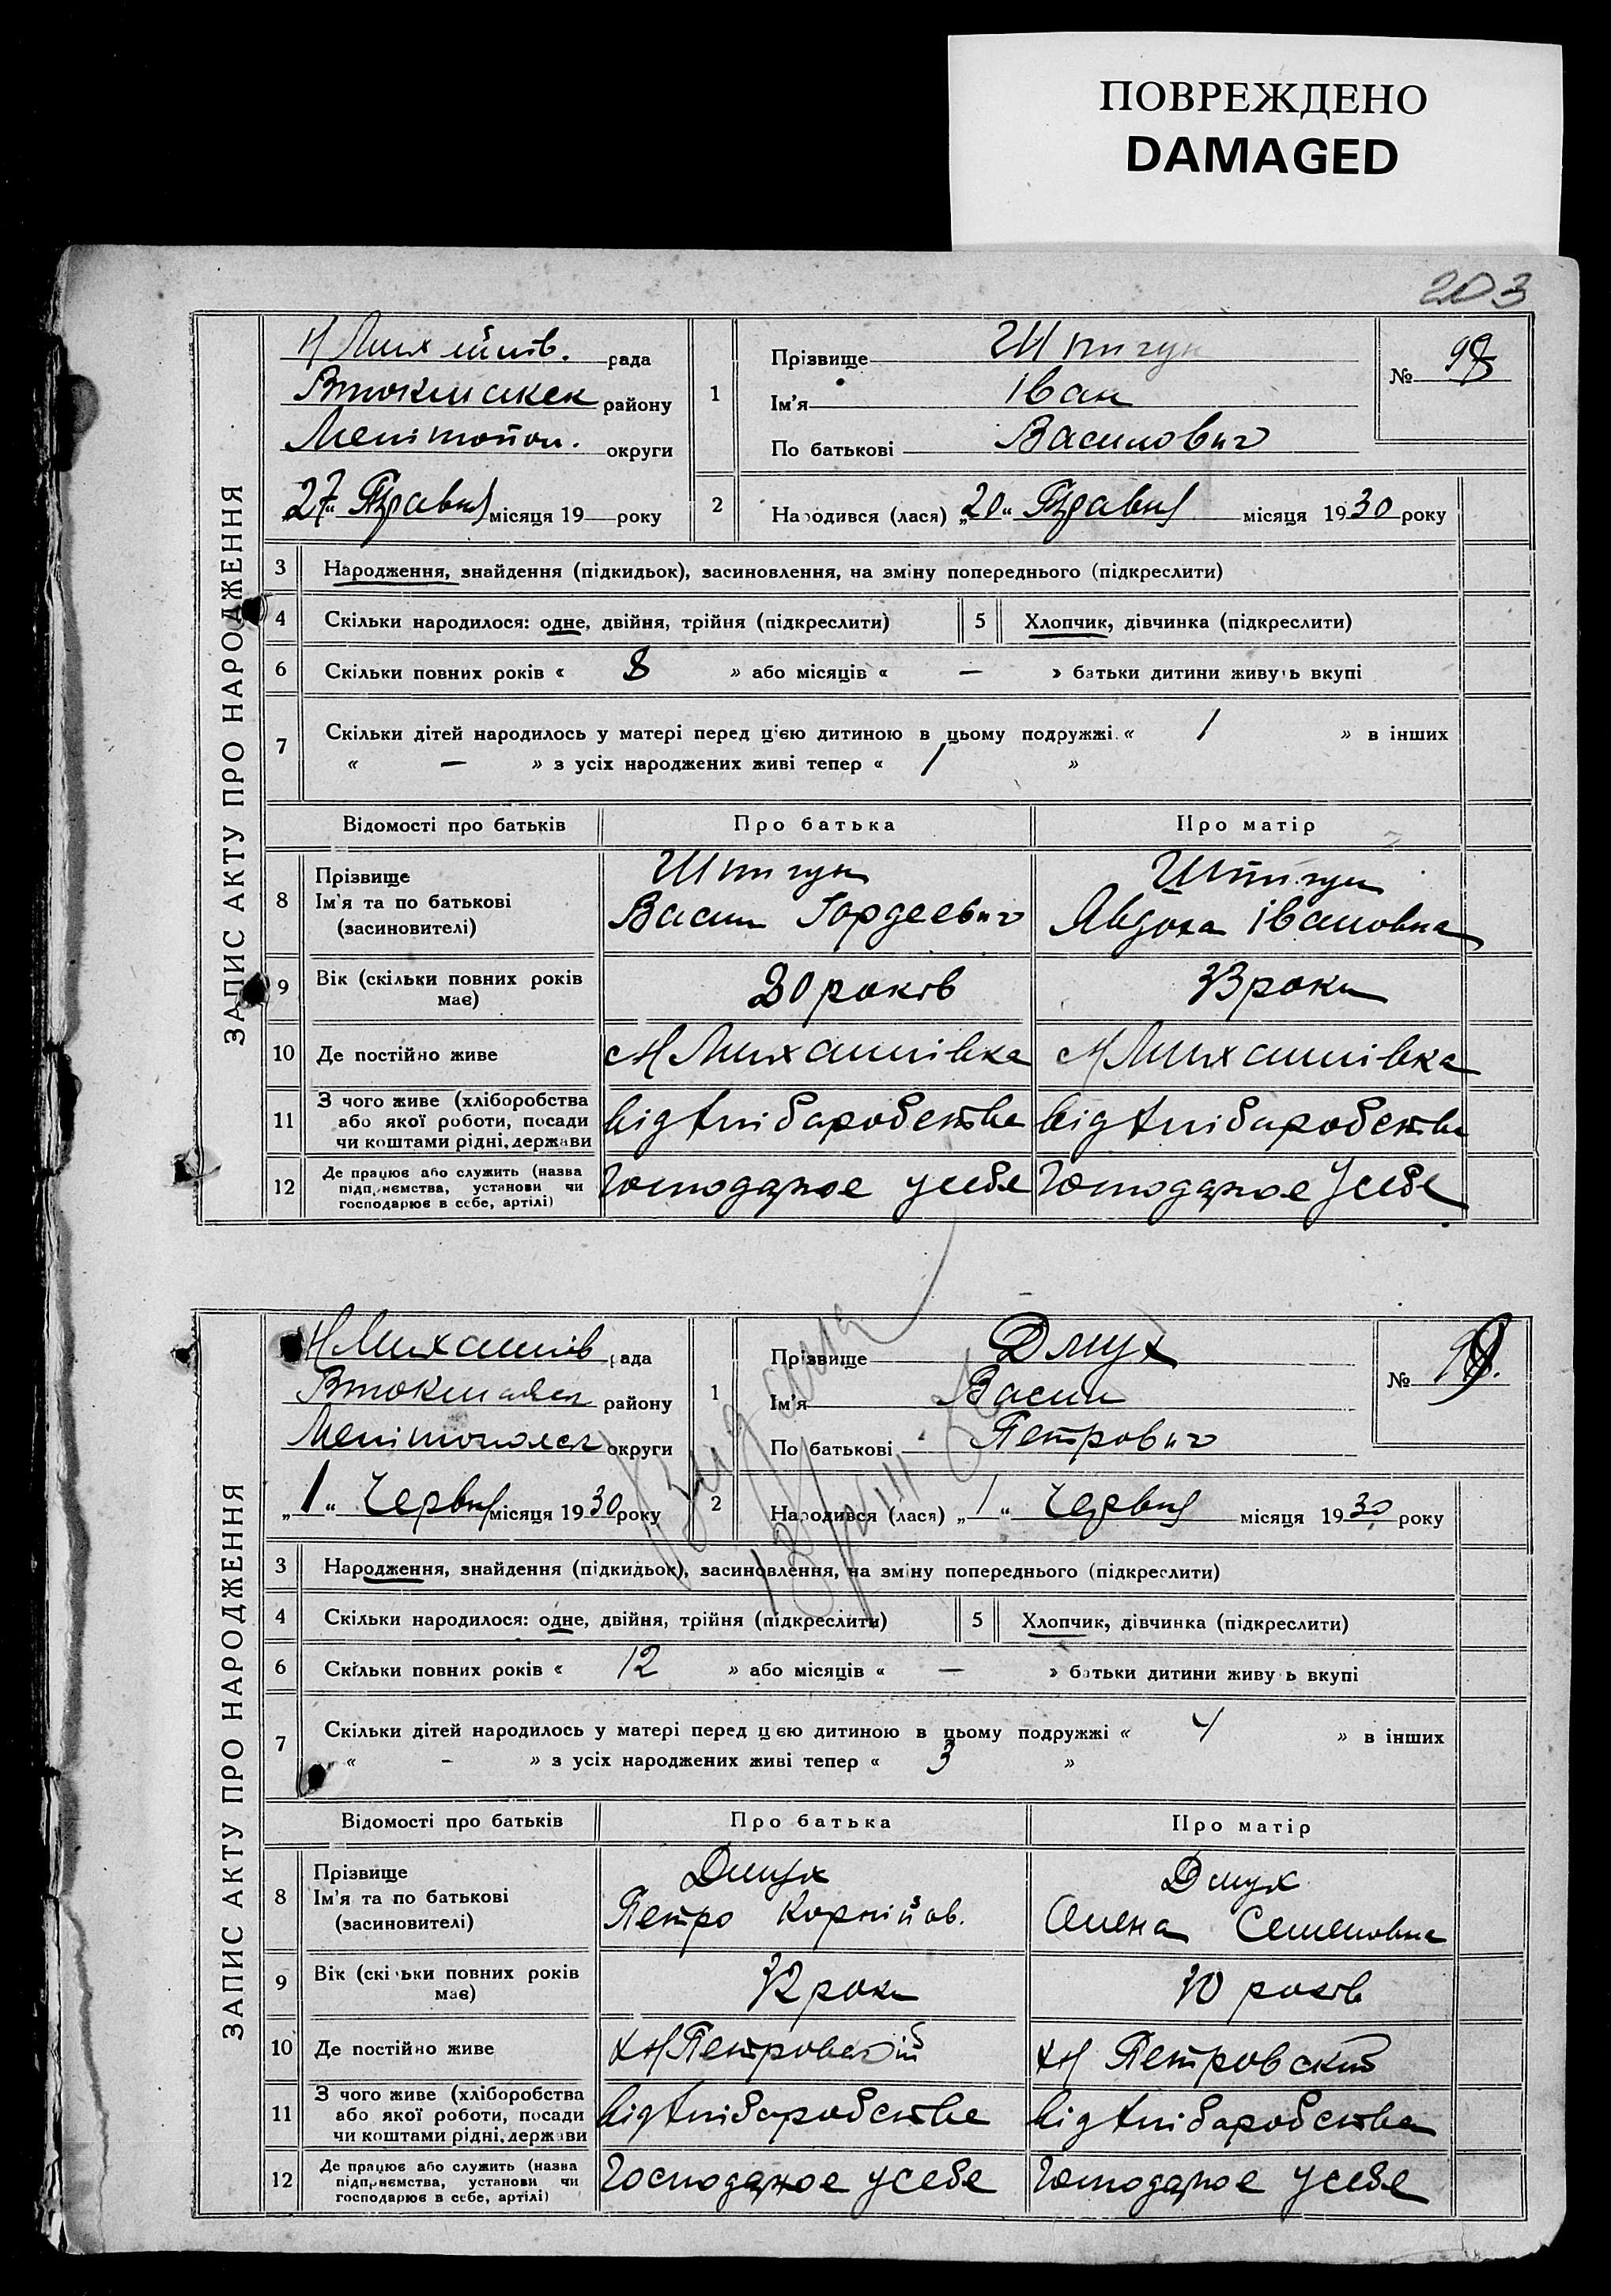 ПОВРЕЖДЕНО
DAMAGED
203
ЗАПИС АКТУ ПРО НАРОДЖЕННЯ
рада
району
округи
27 Травня місяця 19 року
1
Прізвище Штигун
Ім'я Іван
По батькові Василович
№ 98
2 Народився (лася) „20“ Травня місяця 1930 року
3 Народження, знайдення (підкидьок), засиновлення, на зміну попереднього (підкреслити)
4 Скільки народилося: одне, двійня, трійня (підкреслити) 5 Хлопчик, дівчинка (підкреслити)
6 Скільки повних років « 8 » або місяців « — » батьки дитини живуть вкупі
7 Скільки дітей народилось у матері перед ц'єю дитиною в цьому подружжі « 1 » в інших
« — » з усіх народжених живі тепер « 1 »
Відомості про батьків Про батька Про матір
8 Прізвище Штигун Штигун
Ім'я та по батькові Васил Гордеевич Явдоха Івановна
(засиновителі)
9 Вік (скільки повних років має) 30 років 33 роки
10 Де постійно живе Н Михайлівка Н Михайлівка
11 З чого живе (хліборобства
або якої роботи, посади від хліборобства від хліборобства
чи коштами рідні, держави
12 Де працює або служить (назва
підприємства, установи чи Господарює у себе Господарює у себе
господарює в себе, артілі)
ЗАПИС АКТУ ПРО НАРОДЖЕННЯ
Н Михайлів рада
району
округи
„1“ Червня місяця 1930 року
1
Прізвище Дмух
Ім'я Васил
По батькові Петрович
№ 99.
2 Народився (лася) „1“ Червня місяця 1930 року
3 Народження, знайдення (підкидьок), засиновлення, на зміну попереднього (підкреслити)
4 Скільки народилося: одне, двійня, трійня (підкреслити) 5 Хлопчик, дівчинка (підкреслити)
6 Скільки повних років « 12 » або місяців « — » батьки дитини живуть вкупі
7 Скільки дітей народилось у матері перед цєю дитиною в цьому подружжі « 4 » в інших
« - » з усіх народжених живі тепер « 3 »
Відомості про батьків Про батька Про матір
8 Прізвище Дмух Дмух
Ім'я та по батькові Петро Корнійов. Олена Семеновна
(засиновителі)
9 Вік (скільки повних років має) 32 роки 30 років
10 Де постійно живе
11 З чого живе (хліборобства
або якої роботи, посади від хліборобства від хліборобства
чи коштами рідні, держави
12 Де працює або служить (назва
підприємства, установи чи Господарює у себе Господарює у себе
господарює в себе, артілі)